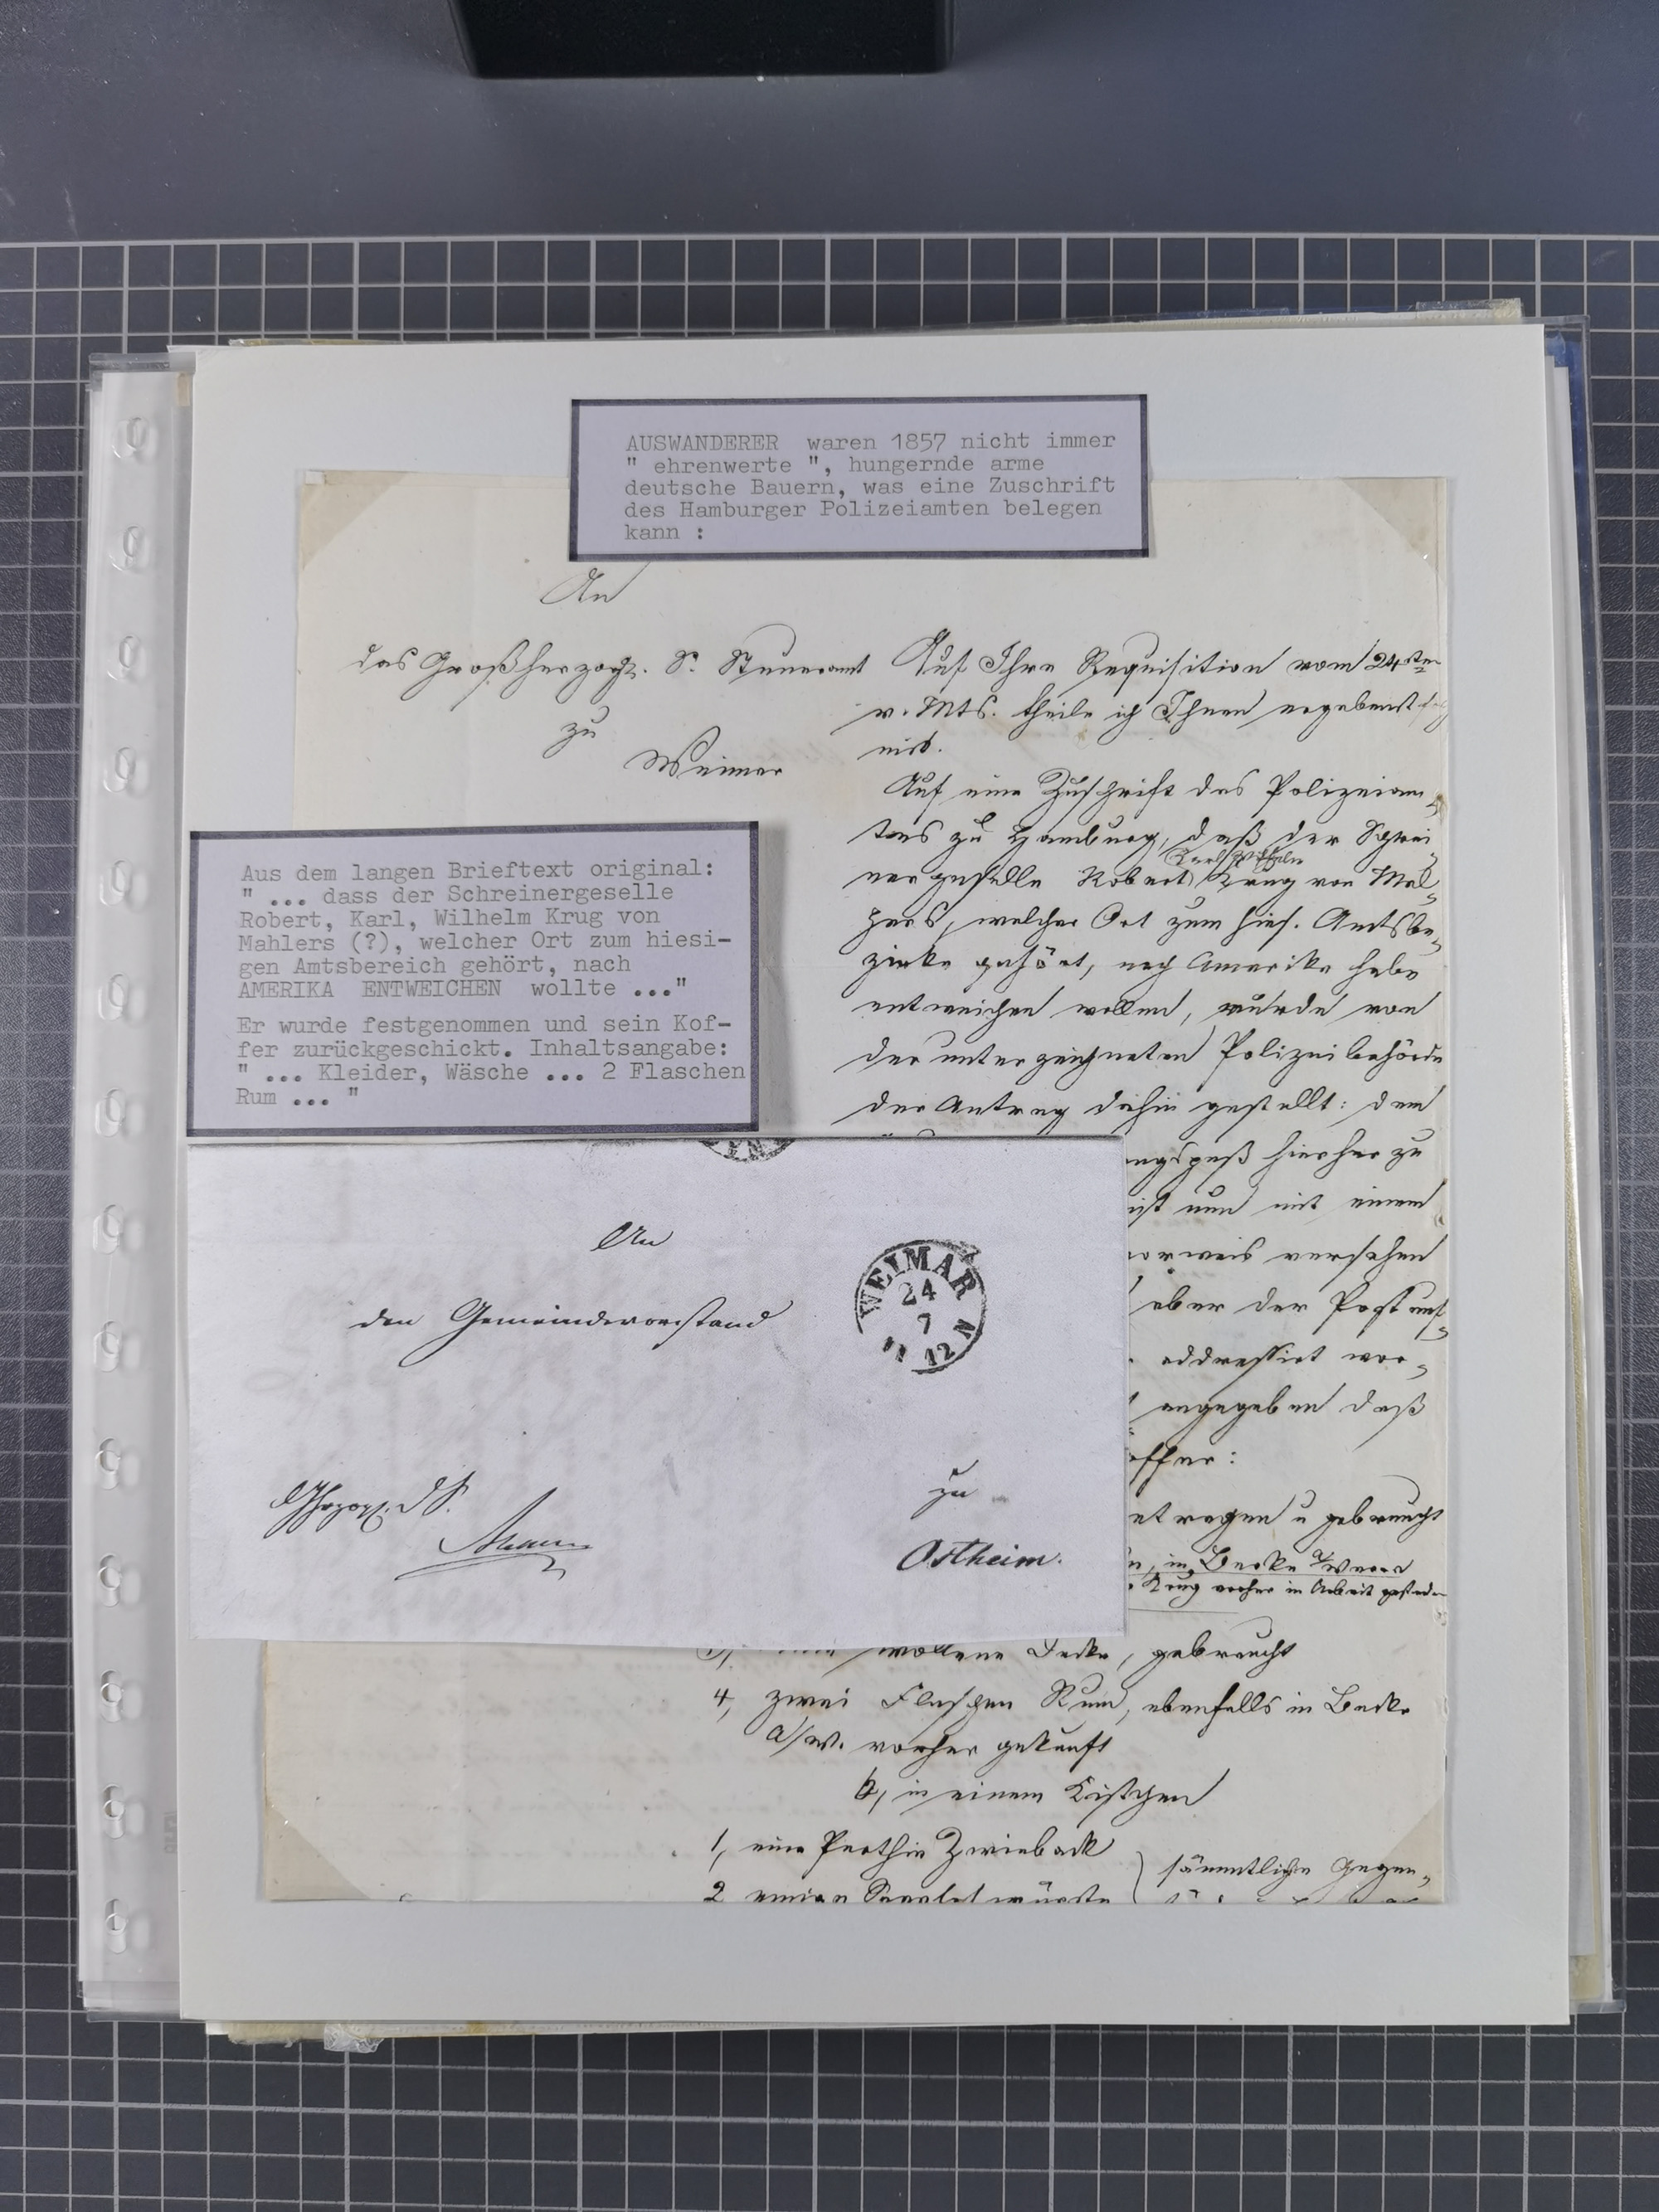 AUSWANDERER waren 1857 nicht immer
" ehrenwerte ", hungernde arme
deutsche Bauern, was eine Zuschrift
des Hamburger Polizeiamten belegen
kann :
An
das Großherzogl. S. Steueramt
zu
Weimar
Auf Ihre Requisition vom 24sten
v. Mts. theile ich Ihnen ergebenst
mit.
Auf eine Zuschrift des Polizeiam-
tes zu Hamburg, daß der Schrei-
Karl Wilhelm
nergeselle Robert Krug von Mal-
hers, welcher Ort zum hies. Amtsbe-
zirke gehört, nach Amerika habe
entweichen wollen, wurde von
der unterzeichneten Polizeibehörde
der Antrag dahin gestellt: dem
ngspaß hierher zu
ist nun mit einem
orweis versehen
aber der Post
addressirt wor-
angegeben daß
offer:
etragen u gebraucht
in Berka a/Werra
Krug vorher in Arbeit gestanden
wollene Decke, gebraucht
4, zwei Flaschen Rum, ebenfalls in Berka
a/W. vorher gekauft
b, in einem Kistchen
1, eine Parthie Zwieback
sämmtliche Gegen-
2 einige
Aus dem langen Brieftext original:
" ... dass der Schreinergeselle
Robert, Karl, Wilhelm Krug von
Mahlers (?), welcher Ort zum hiesi-
gen Amtsbereich gehört, nach
AMERIKA ENTWEICHEN wollte ..."
Er wurde festgenommen und sein Kof-
fer zurückgeschickt. Inhaltsangabe:
" ... Kleider, Wäsche ... 2 Flaschen
Rum ... "
An
den Gemeindevorstand
WEIMAR
24
7
12 N
zu
Ostheim.